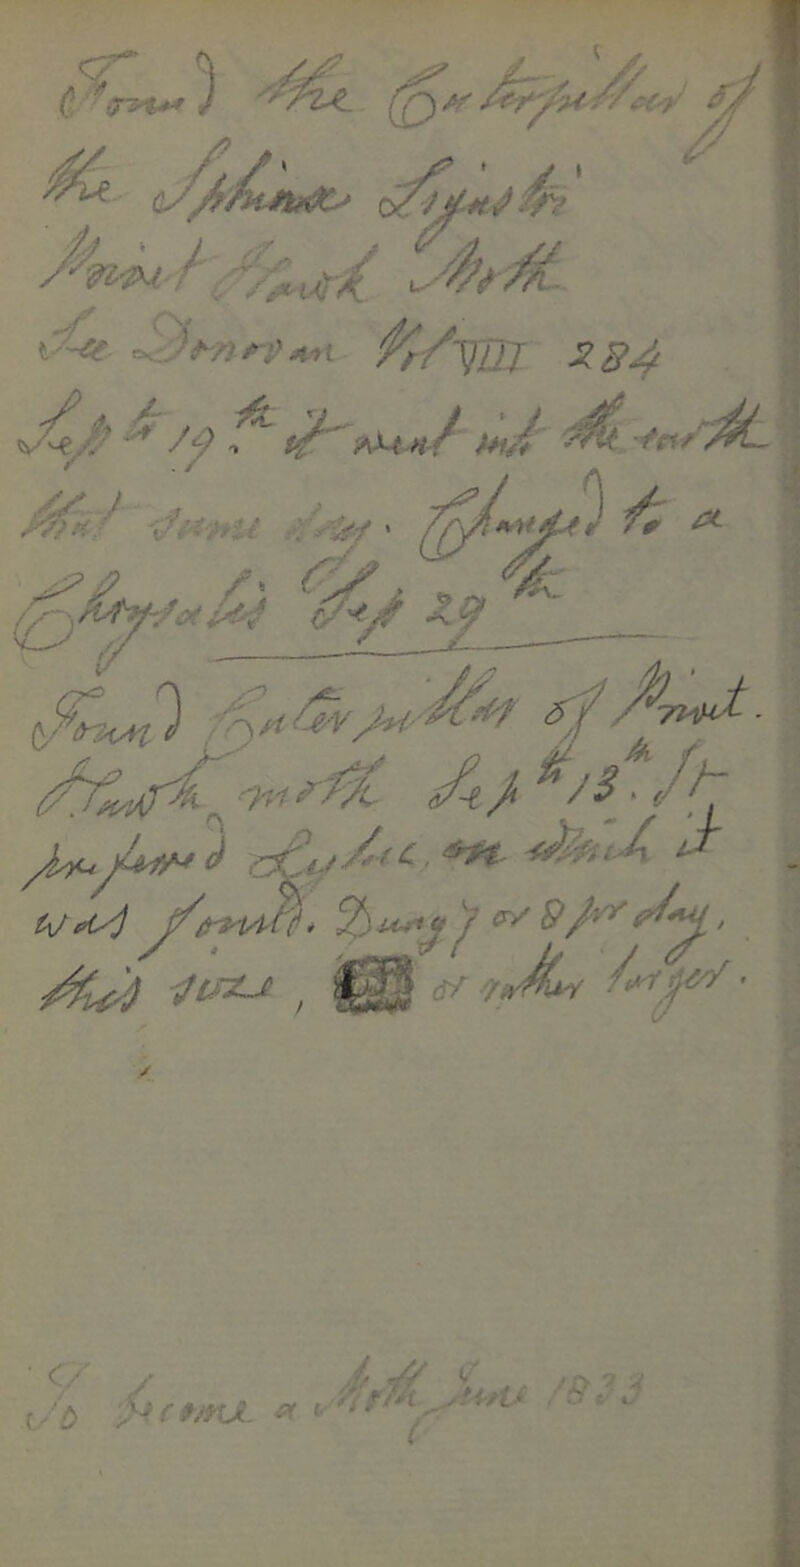 Found the Caterpillar of
the Sphinx Ligustri
Privet Hawk Moth
See Donovan Vol VIII 284
Sept 19.th it went into the earth
that same day. Changed to a
Chrysalis Sep 29th
Found Caterpillar of Privet.
Hawk moth Sept 13.th It
prefered Lylac, on which it
was found. Dung 7 or 8 per day,
this size, or rather larger.
To become a Moth June 1833